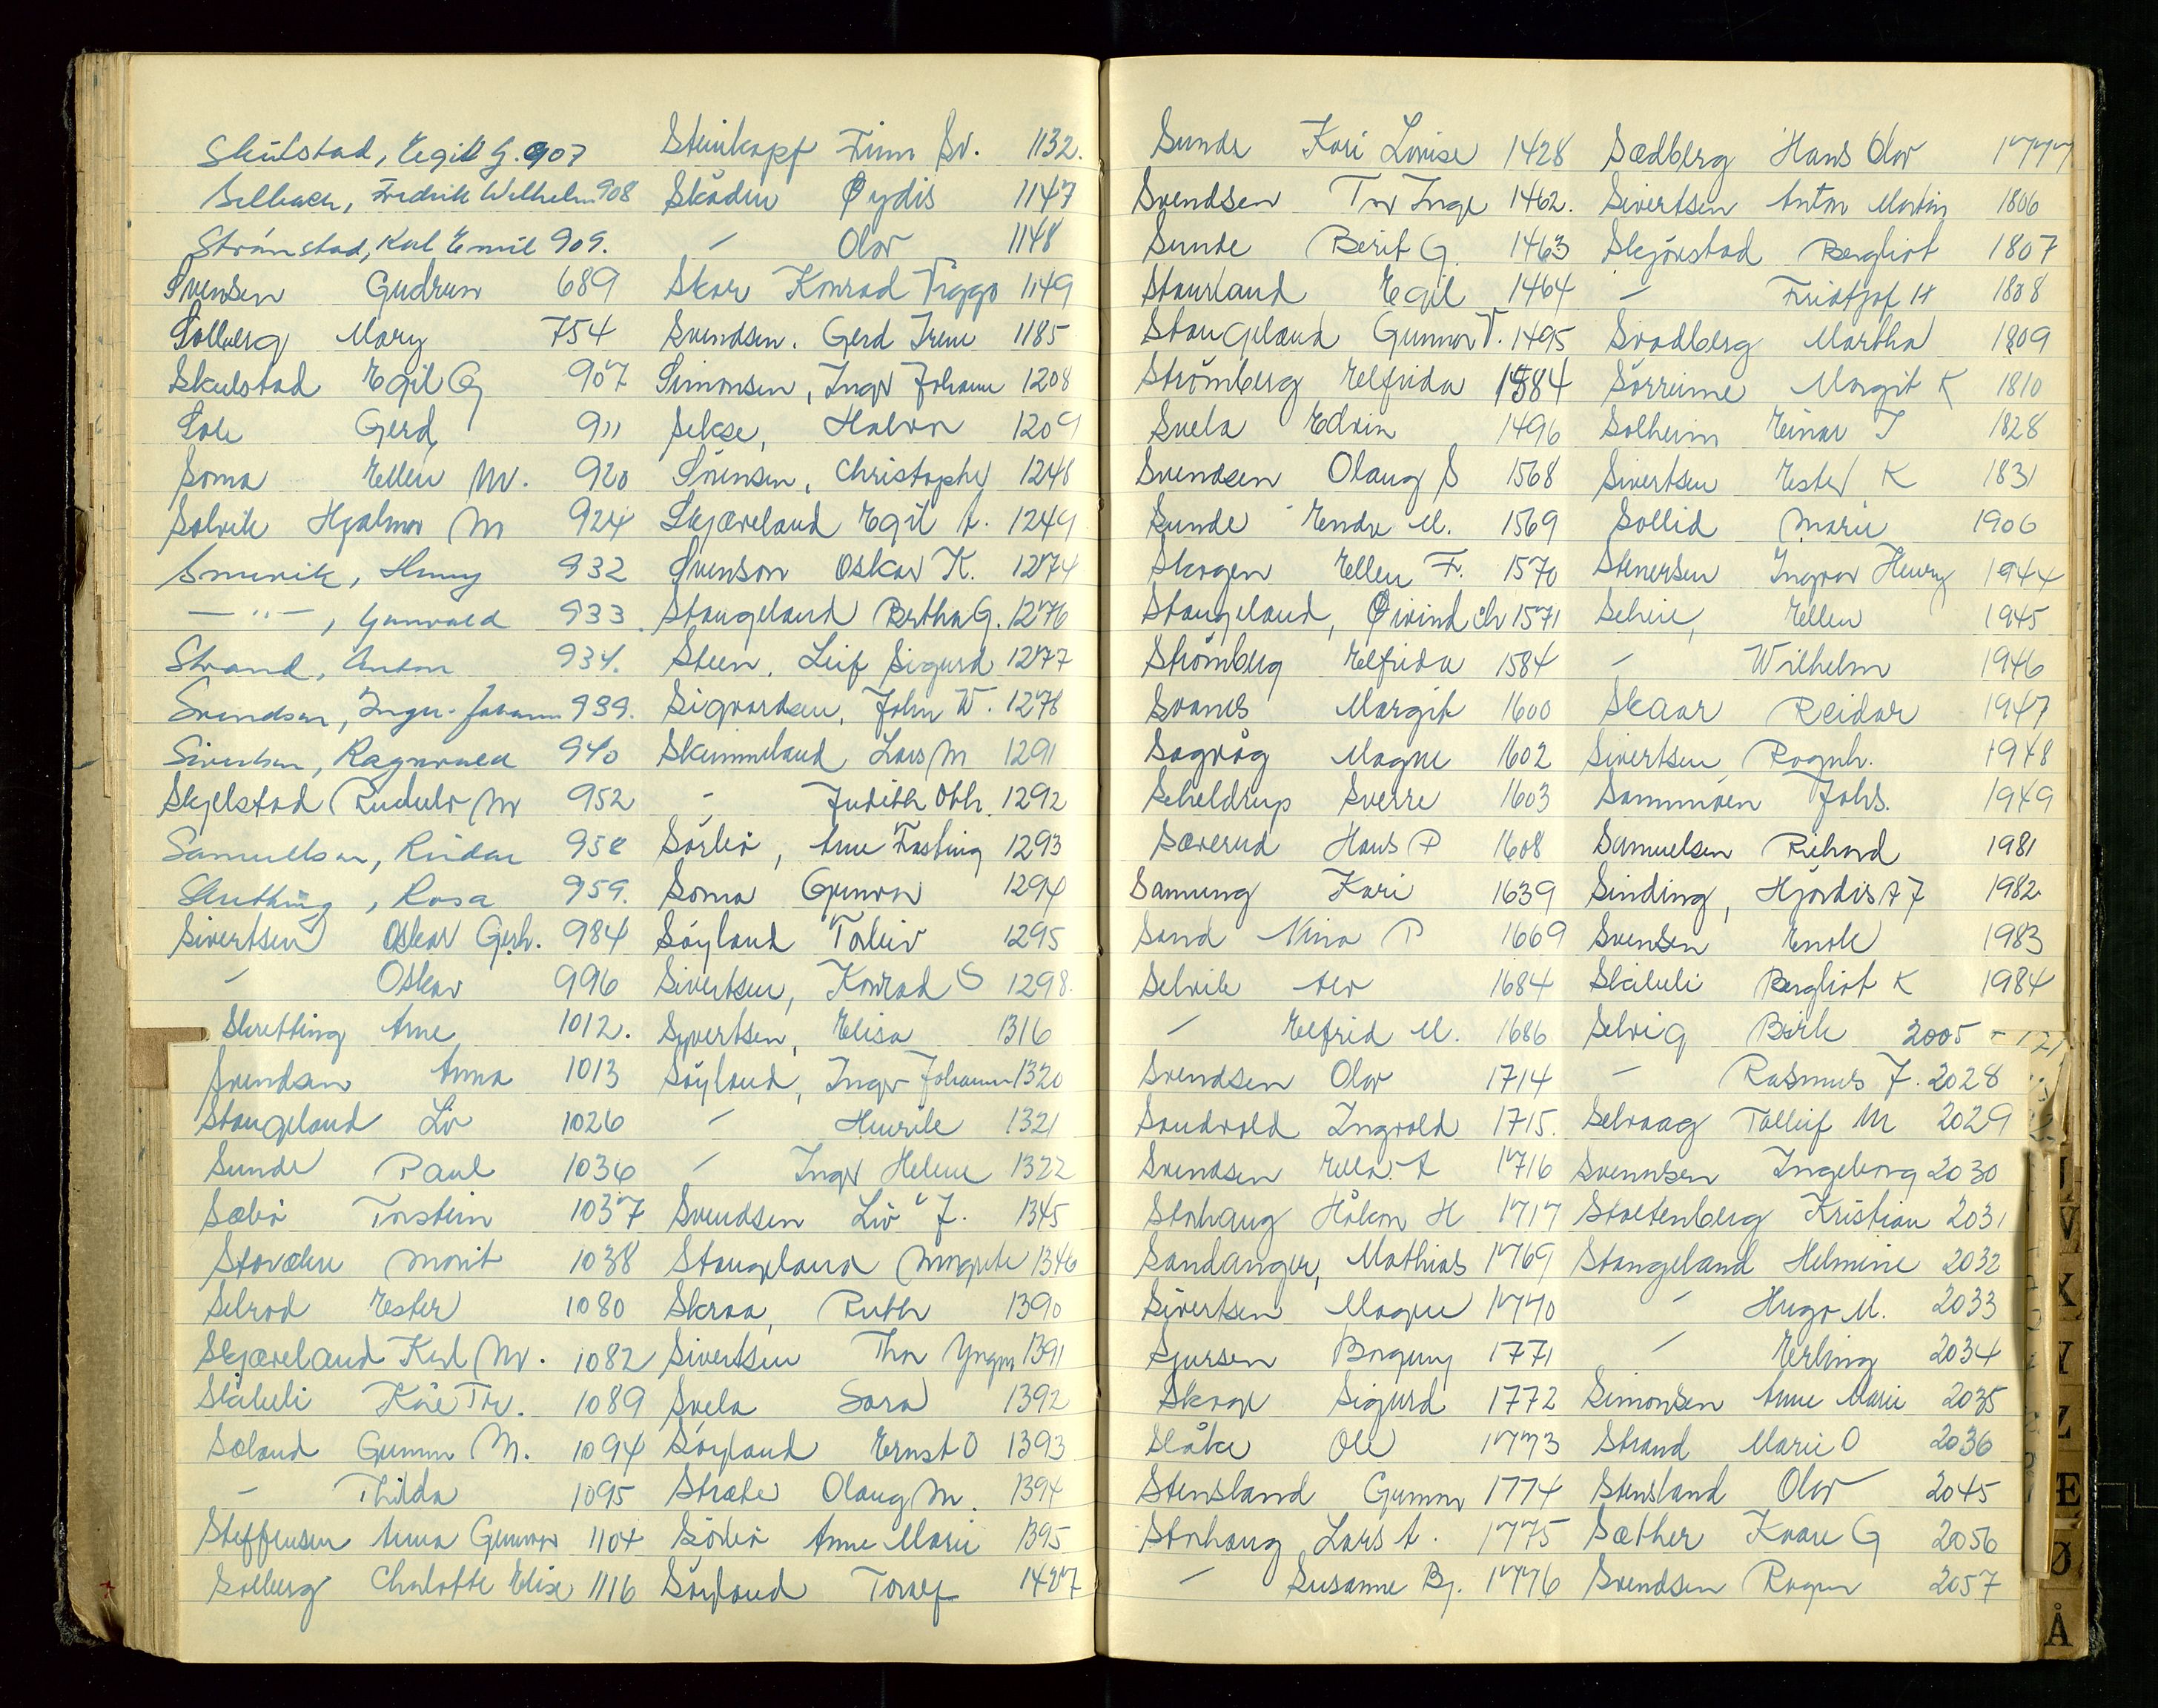 Skulstad, Egil G. 907
Selbach, Fredrik Wilhelm 908
Strömstad, Karl Emil 909.
Svensen Gudrun 689
Solberg Mary 754
Skulstad Egil G 907
Sole Gerd 911
Soma Ellen M. 920
Solvik Hjalmar M 924
Smevik, Henny 932
— " —, Gunvald 933
Strand, Anton 934.
Svendsen, Inger Johanne 939.
Sivertsen, Ragnvald 940
Skjelstad Rudulv M 952
Samuelsen, Reidar 958
Skretting, Rosa 959.
Sivertsen Oskar Gerh. 984
- Oskar 996
Skretting Arne 1012.
Svendsen Anna 1013
Stangeland Liv 1026
Sunde Paul 1036
Sæbö Torstein 1037
Stavelin Marit 1038
Selrod Ester 1080
Skjæveland Karl M. 1082
Skileli Kåre Th. 1089
Sæland Gunnar M. 1094
- Thilda 1095
Steffensen Anna Gunvor 1104
Solberg Charlotte Elise 1116
Steinkopf Finn Sv. 1132.
Skådin Øydis 1147
- Olav 1148
Skar Konrad Viggo 1149
Svendsen. Gerd Irene 1185
Simonsen, Inger Johanne 1208
Sekse, Halvor 1209
Sörensen, Christopher 1248
Skjæveland Egil A. 1249
Svenson Oskar K. 1274
Stangeland Bertha G. 1276
Steen, Leif Sigurd 1277
Sigvartsen, John W. 1278
Skimmeland Lars M 1291
- Judith Oth. 1292
Sörbö, Arne Fasting 1293
Soma Gunvor 1294
Söyland Torleiv 1295
Sivertsen, Konrad S 1298.
Syvertsen, Elisa 1316
Söyland, Inger Johanne 1320
- Henrik 1321
- Inger Helene 1322
Svendsen Liv J. 1345
Stangeland Margrete 1346
Skraa, Ruth 1390
Sivertsen Thor Yngvar 1391
Svela Sara 1392
Söyland Ernst O 1393
Stræte Olaug M. 1394
Sörbö Anne Marie 1395
Söyland Toralf 1427
Sunde Kari Louise 1428
Svendsen Tor Inge 1462.
Sunde Berit G. 1463
Staursland Egil 1464
Stangeland Gunnar V. 1495
Strömberg Elfrida 1584
Svela Edvin 1496
Svendsen Olaug S 1568
Sunde Endre M. 1569
Skogen Ellen F. 1570
Stangeland, Øivind Chr 1571
Strömberg Elfrida 1584
Svanes Margit 1600
Sagvåg Magne 1602
Scheldrup Sverre 1603
Sæverud Hans P 1608
Samung Kari 1639
Sand Nina P 1669
Selvik Alv 1684
- Elfrid M. 1686
Svendsen Olav 1714
Sandvold Ingvald 1715.
Svendsen Ella A 1716
Storhaug Håkon H 1717
Sandanger, Mathias 1769
Sivertsen Magne 1770
Sjursen Borgunny 1771
Skage Sigurd 1772
Slåke Ole 1773
Stensland Gunnar 1774
Storhaug Lars A. 1775
- Susanne Bj. 1776
Sædberg Hans Olav 1777
Sivertsen Anton Martin 1806
Skjörestad Bergliot 1807
- Fridtjof H 1808
Svadberg Martha 1809
Sörreime Margit K 1810
Solheim Einar J 1828
Sivertsen Ester K 1831
Sollid Marie 1906
Stenersen Ingvar Henry 1944
Scheie, Ellen 1945
- Wilhelm 1946
Skaar Reidar 1947
Sivertsen Ragnh. 1948
Sammöen Johs. 1949
Samuelsen Richard 1981
Sinding, Hjördis A J 1982
Svensen Enok 1983
Skileli Bergliot K 1984
Selvig Birk 2005
- Rasmus J. 2028
Selvaag Tolleif M 2029
Svennsen Ingeborg 2030
Stoltenberg Kristian 2031
Stangeland Helmine 2032
- Hugo M. 2033
- Erling 2034
Simonsen Anne Marie 2035
Strand Marie O 2036
Stensland Olav 2045
Sæther Kaare G 2056
Svendsen Ragna 2057
V
Y
Z
Æ
Ø
Å